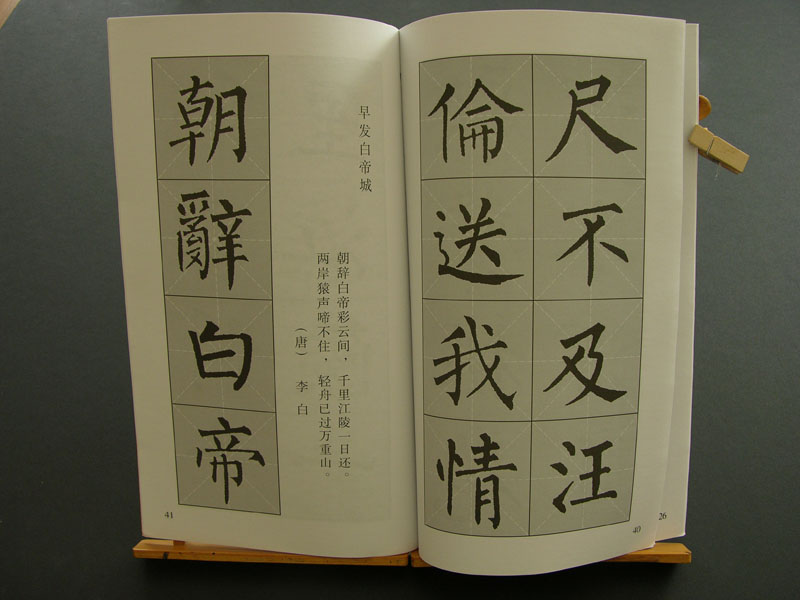 尺不及汪
倫送我情
40
26
早发白帝城
朝辞白帝彩云间，千里江陵一日还。
两岸猿声啼不住，轻舟已过万重山。
（唐） 李白
朝辭白帝
41